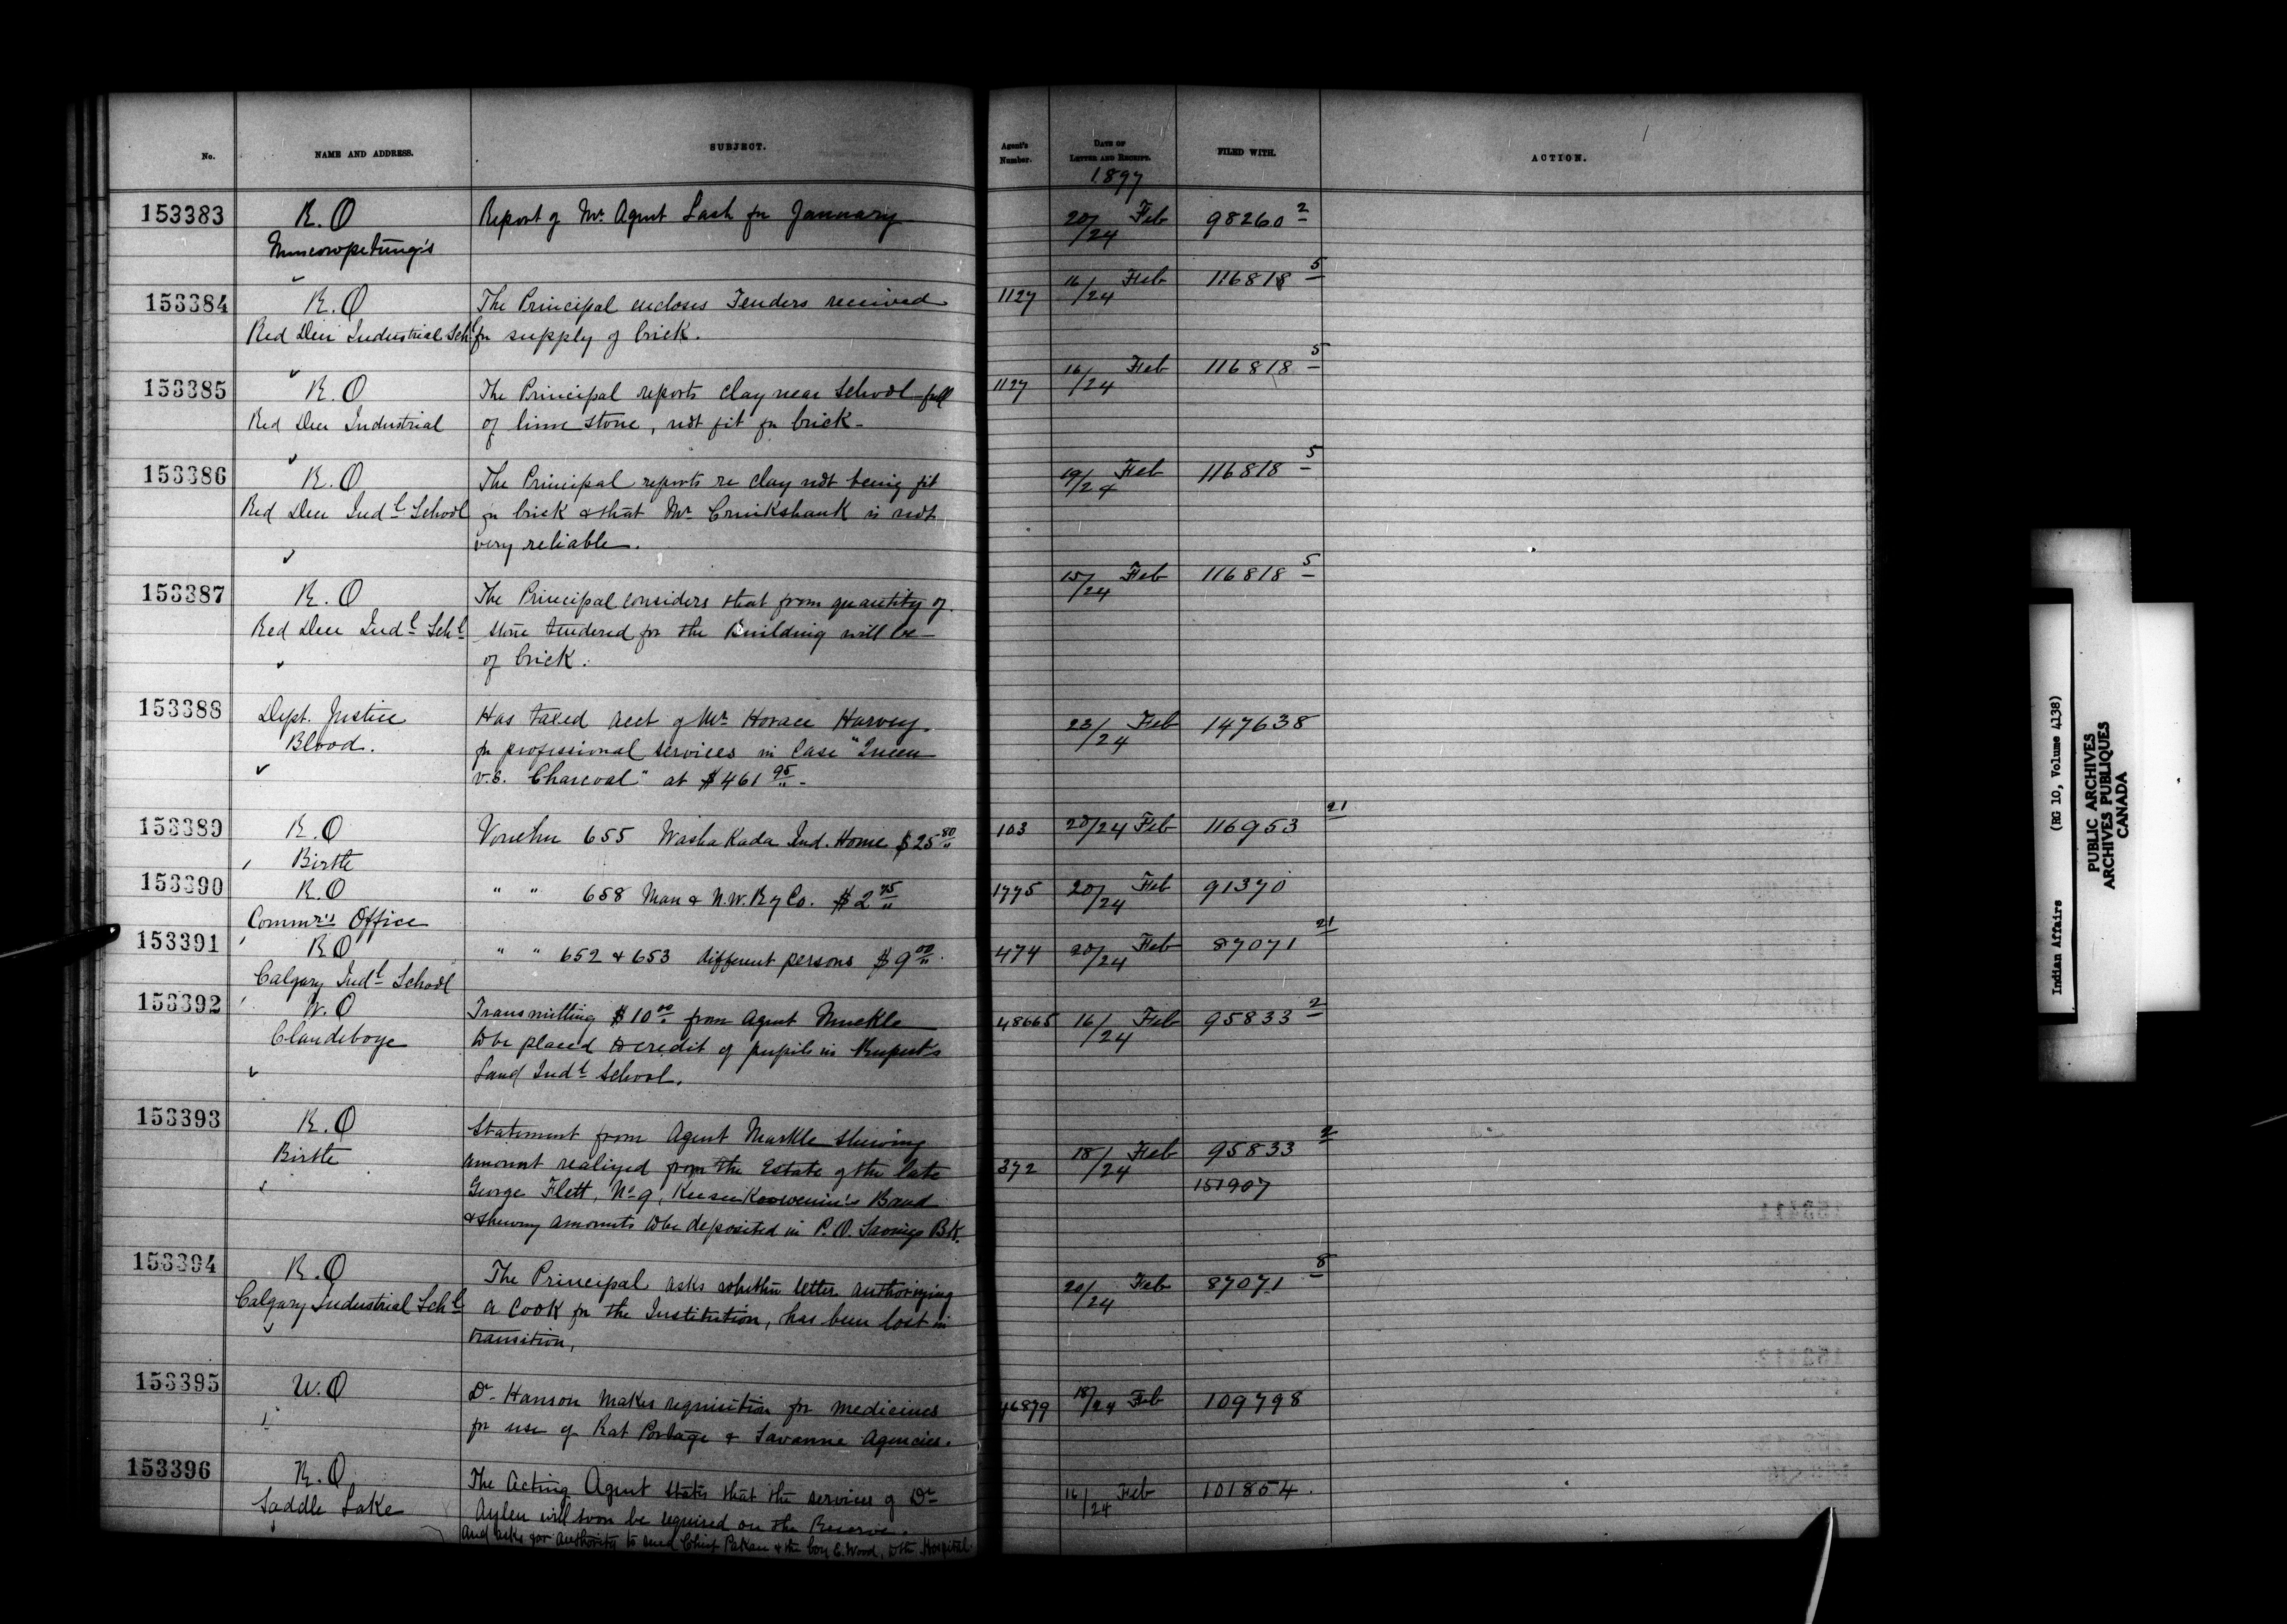 No. NAME AND ADDRESS. SUBJECT. Agent's Number. DATE OF LETTER AND RECEIPT. FILED WITH. ACTION.
1897
153383 R.O Report of Mr. Agent Lash for January 20/24 Feb 98260 2
Muscowpetung's
153384 R.O The Principal encloses Tenders received 1127 16/24 Feb 116818 5
Red Deer Industrial Sch. for supply of brick.
153385 R.O The Principal reports clay near School full 1127 16/24 Feb 116818 5
Red Deer Industrial of lime stone, not fit for brick.
153386 R.O The Principal reports re clay not being fit 19/24 Feb 116818 5
Red Deer Indl School for brick & that Mr. Cruikshank is not
very reliable.
153387 R.O The Principal considers that from quantity of 15/24 Feb 116818 5
Red Deer Indl Schl stone tendered for the Building will be
of brick.
153388 Dept. Justice Has taxed acct of Mr. Horace Harvey 23/24 Feb 147638
Blood. for professional services in Case "Queen
v.s. Charcoal" at $461 95
153389 R.O Voucher 655 Washakada Ind. Home $25 80 103 20/24 Feb 116953 21
Birtle
153390 R.O " " 658 Man & N.W. Ry Co. $2 75 1775 20/24 Feb 91370
Commr's Office
153391 R.O " " 652 & 653 different persons $9 00 474 20/24 Feb 87071 21
Calgary Indl School
153392 W.O Transmitting $10 00 from Agent Muckle 48665 16/24 Feb 95833 2
Clandeboye to be placed to credit of pupils in Rupert's
Land Indl School.
153393 R.O Statement from Agent Markle shewing 372 18/24 Feb 95833 2
Birtle amount realized from the Estate of the late 151907
George Flett, No 9, Keeseekoowenin's Band
& shewing amounts to be deposited in P.O. Savings Bk.
153394 R.O The Principal asks whether letter authorizing 20/24 Feb 87071 8
Calgary Industrial Schl a Cook for the Institution, has been lost in
transition,
153395 W.O Dr. Hanson makes requisition for medicines 46879 18/24 Feb 109798
for use of Rat Portage & Savanne Agencies.
153396 R.O The Acting Agent states that the services of Dr. 16/24 Feb 101854.
Saddle Lake Aylen will soon be required on the Reserve.
and asks for authority to send Chief Pakan & the boy E. Wood, to the Hospital
Indian Affairs (RG 10, Volume 4138)
PUBLIC ARCHIVES
ARCHIVES PUBLIQUES
CANADA